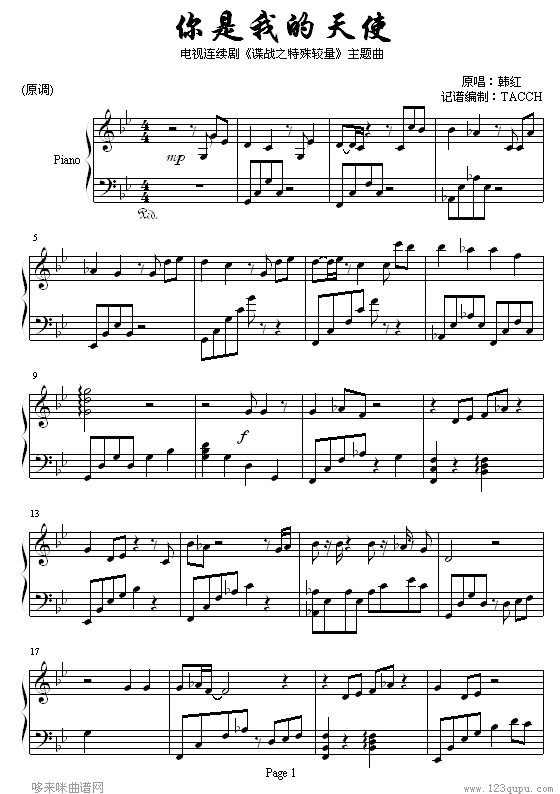 你是我的天使
电视连续剧《谍战之特殊较量》主题曲
原唱：韩红
(原调)
记谱编制：TACCH
Piano
mp
5
9
f
13
17
Page 1
哆来咪曲谱网
www.123qupu.com